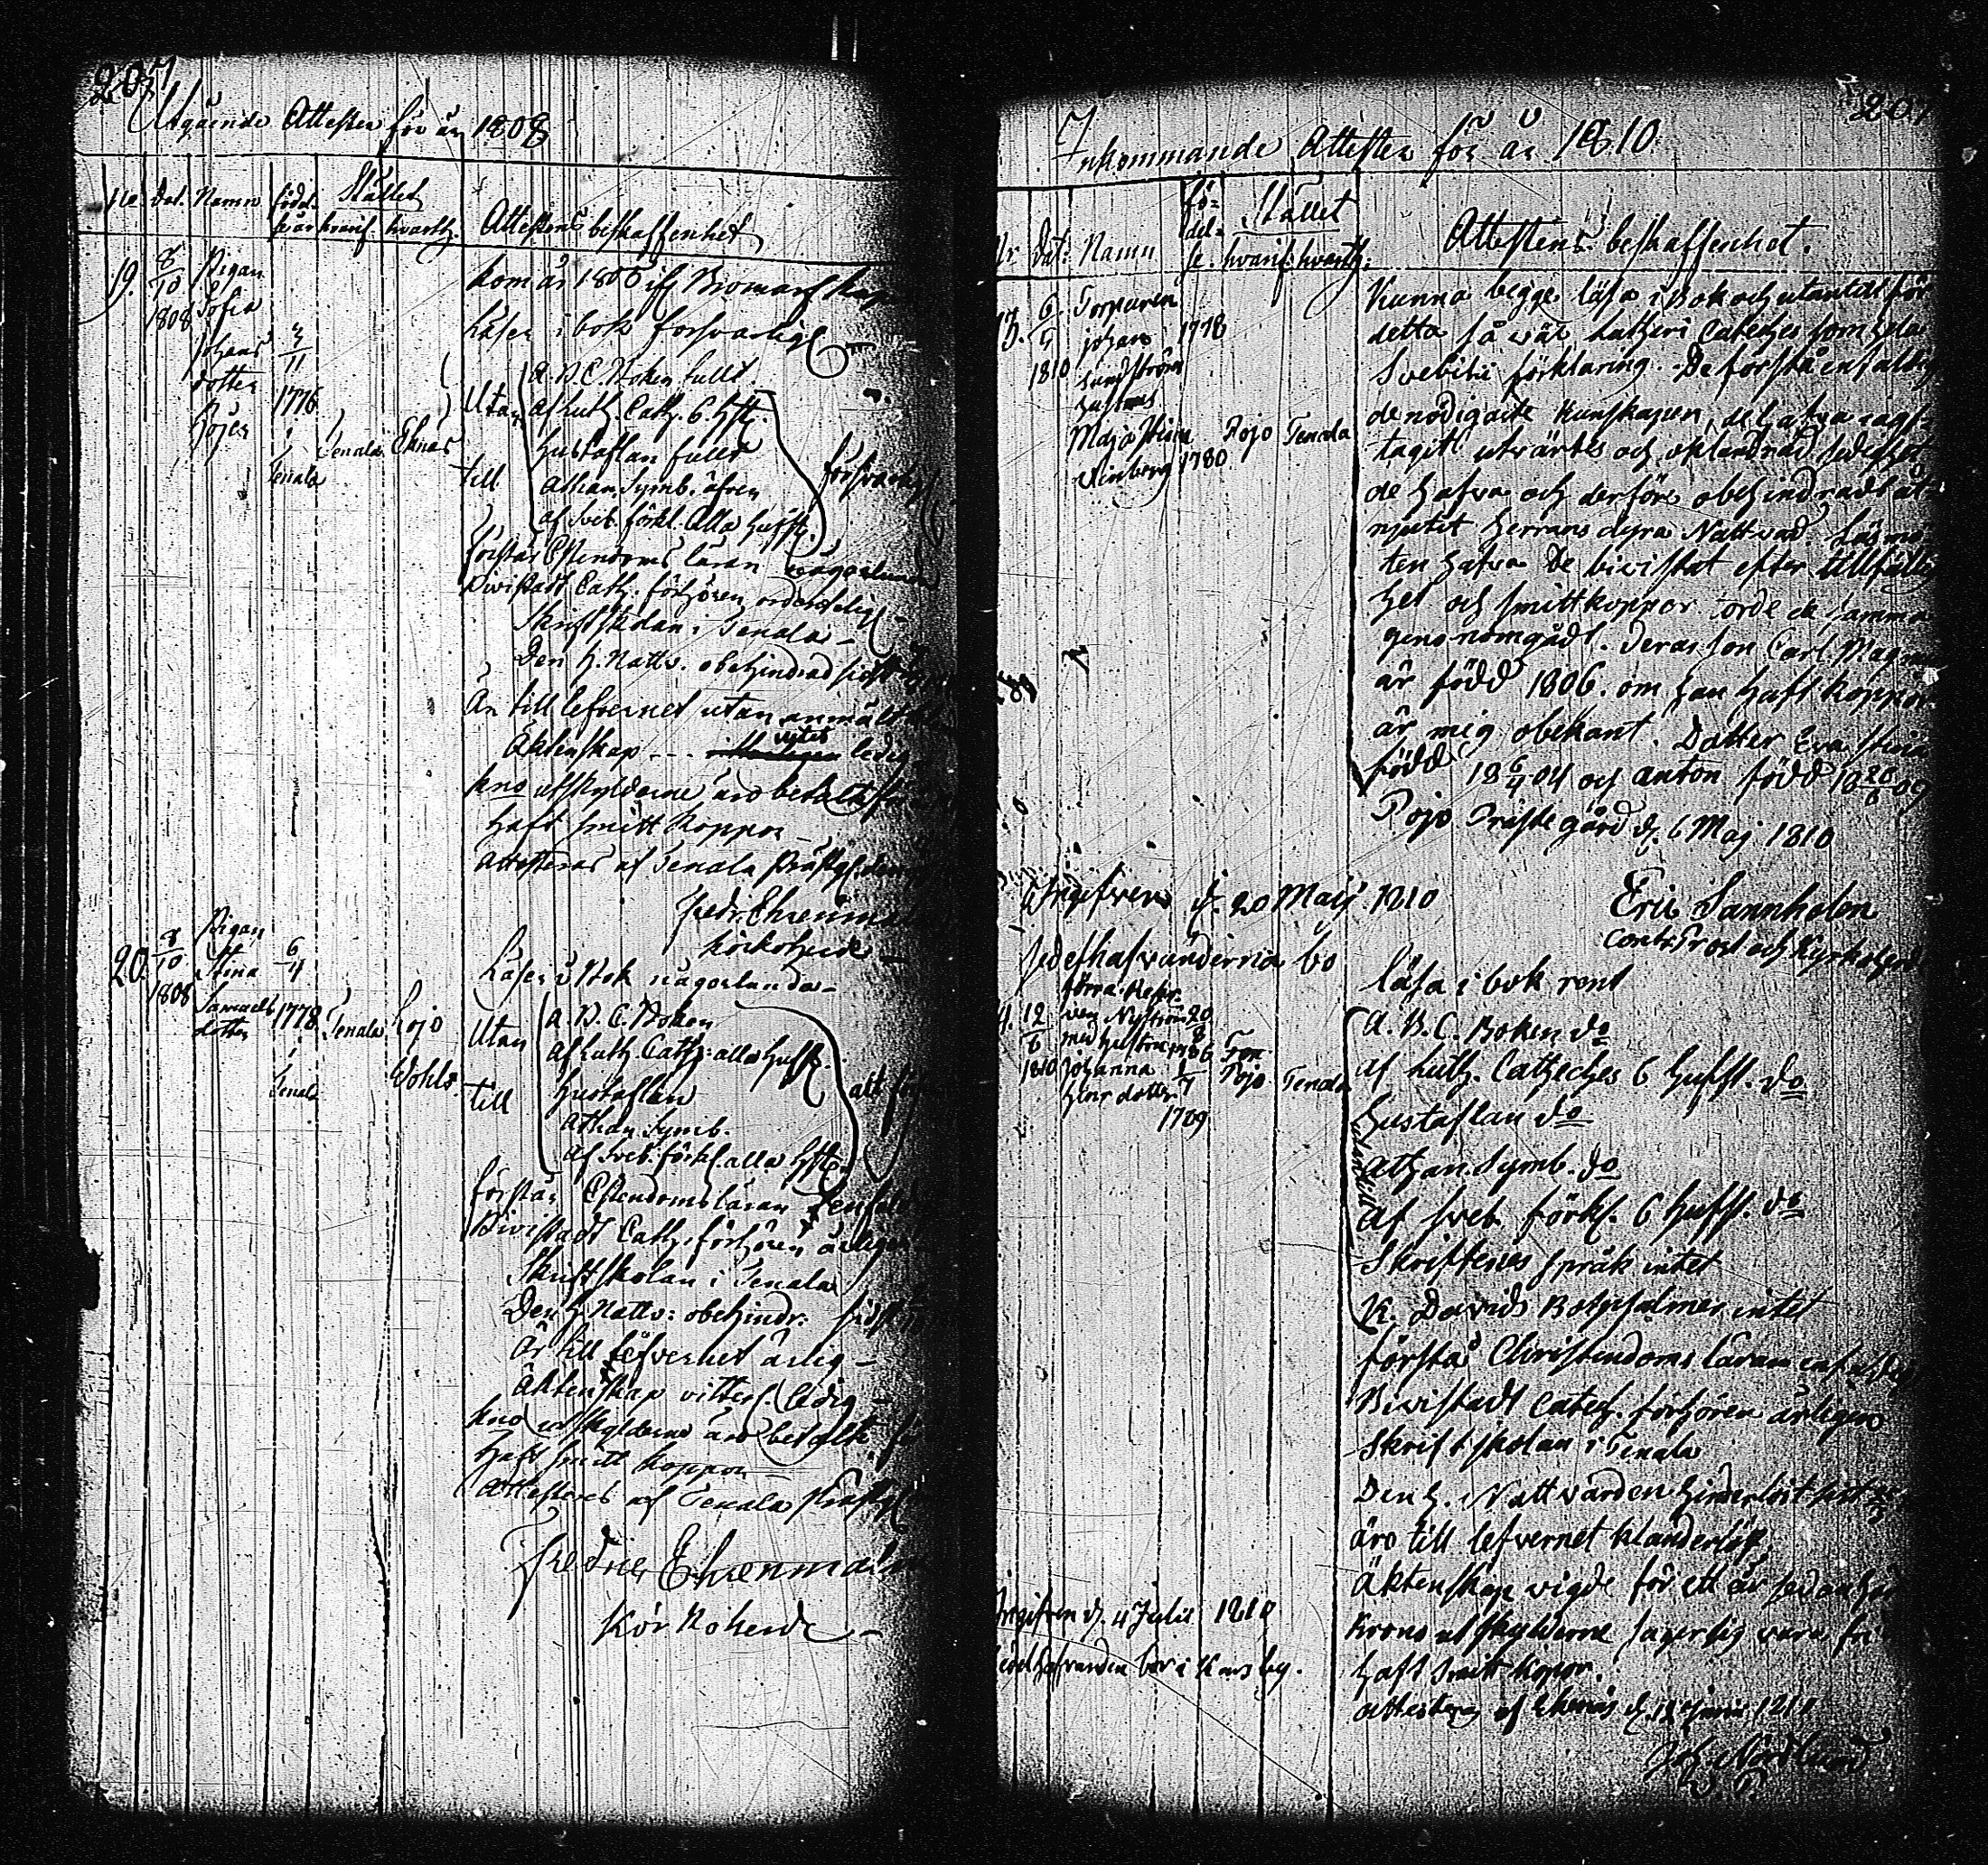 207
Utgående Attester för år 1808
No. Dat. Namn födelse år Stället hvarif. hvarth. Attestens beskaffenhet
19. 8/10 1808 Pigan Sofia Johans dotter Röjer 4/11 1776 Tenala Tenala Eknäs
kom år 1806 if Bromarf kap
Läser i bok försvarligt
Utan till
A.B.C. Boken fullt
af Luth. Cath. 6 hft.
Hustaflan fullt
Athan. Symb. äfven
af Sveb. förkl. Alla hufst.
försvarligt
förstår Cstendoms läran någorlunda
Bivistadt Cath. förhören ordentelig
Skriftskolan i Tenala
Den h. Nattv. obehindrad sidst
Är till lefvernet utan anmält
Äktenskap - - - vitterl. ledig
krno utskylderne äro betalte för
haft smitt koppor
Attesteras af Tenala Prästg. den
Fredr. Ehrenm
körkoherde
20. 8/10 1808 Pigan Stina Samuels dotter 6/4 1778 Tenala Tenala Lojo Wohls
Läser i Bok någorlunda
Utan till
A.B.C. Boken
af Luth. Cath: alla hufst.
Hustaflan
Athan. Symb.
af Sveb. förkl. alla hft.
förstår Cstendoms läran enfal
Bivistadt Cath. förhören årligen
Skriftskolan i Tenala
Den h. Nattv: obehindr: sidst
Är till lefvernet ärlig
Äktenskap vitterl. ledig
krno utskylderne äro betalte för
haft smitt koppor
Attesteras af Tenala Prästg.
Fredric Ehrenmalm
Körkoherde
207
Inkommande Attester för år 1810.
Nr Dat: Namn födelse. Stället hvarif. hvarth: Attestens beskaffenhet.
6/5 1810 Torparen Johan Lundström 1778 hustrus Maja Stina Winberg 1780 Pojo Tenala
Kunna begge läsa i Bok och utantill för
detta så väl Lutheri Cateches som hela
Svebilii förklaring. De förstå enfaldig
de nödigaste kunskapen, de hafva
tagit utvärtes och oklandrad sedighet
de hafva och derföre obehindradt åt
njutit Herrans dyra Nattvad. Läsmö
ten hafva De bivistat efter tillfällig
het och smittkoppor torde de samma
genomgådt. Deras son Carl Magnus
är född 1806. om han haft koppor
är mig obekant. Dotter Eva Stina
född 18 6/4 04 och Anton född 18 20/8 09
Pojo Prästegård d. 6 Maj 1810
Eric Sannholm
Contr. Prost och Kyrkoherd
Ingifven d. 20 Maij 1810
sedelhafvanderna bo
12/6 1810 förra Refr. ven Nyström 20/8 1786 med hustru Johanna Henr. dotter 1/7 1789 från Pojo Tenala
läsa i bok rent
A.B.C. Boken do
af Luth. Catheches 6 hufst. do
Hustaflan do
Athan. Symb. do
af Sveb. förkl. 6 hufst. do
Skriftenes språk intet
K. Davids Botpsalmer intet
förstå Christendoms Läran enfaldig
Bivistadt Catech. förhören årligen
Skriftskolan i Tenala
Den h. Nattvarden hinderlöst sist
äro till lefvernet klanderlös
äktenskap vigde för ett år sedan
Krono utskylderne säger sig vara fri
haft smitt kopor.
attesterar af Ekenäs d. 12 Junii 1810
Joh. Nordlund
V. P.
Ingifven d. 4 Julii 1810
sedelhafvanden bor i Karsby.